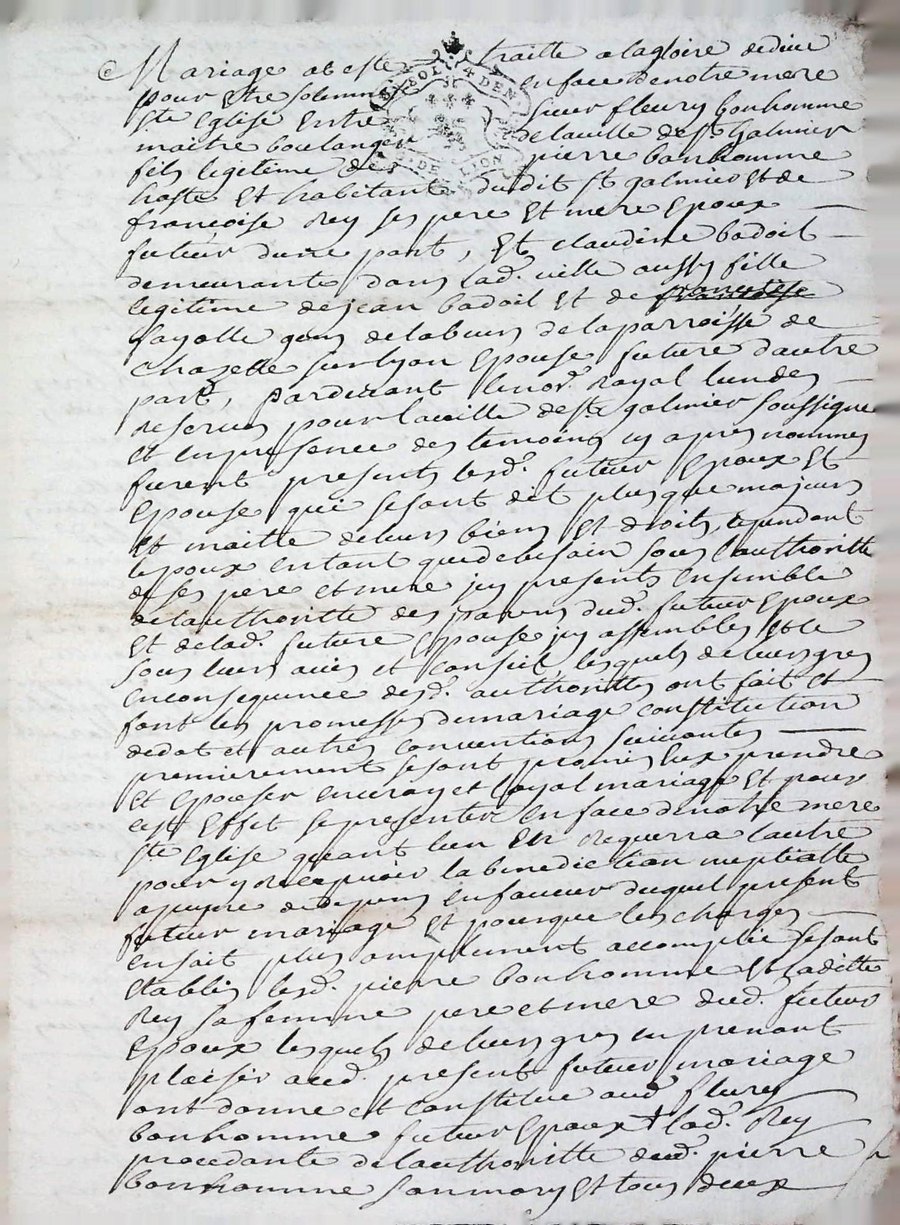 Mariage a este traitté a la gloire de dieu
pour Etre solemni en face de notre mere
ste Eglise Entre sieur fleury bonhomme
maitre boulanger de la ville de st galmier
fils legitime de pierre bonhomme
hoste Et habitant dudit st galmier et de
francoise Rey ses pere Et mere Epoux
futeur dune part, Et claudine badoil
demeurante dans lad. ville aussy fille
legitime de jean badoil Et de francoise
fayolle gens de labeur de la parroisse de
Chazelle sur lyon Epouse future dautre
part, pardevant le nore. Royal lun des
reserves pour la ville de st galmier soussigne
et en presence des temoins cy apres nommes
furent presents lesd. futeur Epoux Et
Epouse qui se sont dit plus que majeurs
et maitre de leurs biens Et droits, cependant
lepoux en tant que de besoin sous l'authoritte
de ses pere et mere icy presents ensemble
de lauthoritte des parens dud. futeur Epoux
Et de lad. future Epouse icy assembles Et le
sous leurs avies et conseil, lesquels de leurs gres
en consequence desd. authorittes ont fait et
font les promesses de mariage constitution
de dot et autres conventions suivantes
premierement se sont promis eux prendre
Et Epouser en vray et loyal mariage Et pour
cest Effet se presenter en face de notre mere
ste Eglise quant lun En Requerra lautre
pour y Recepvoir la benediction nuptialle
a peyne de depens en faveur duquel present
futeur mariage Et pour que les charges
en soit plus amplement accomplie se sont
Etablis lesd. pierre bonhomme Et laditte
Rey sa femme pere et mere dud. futeur
Epoux lesquels de leurs gres en prenant
plaisir aud. present futeur mariage
ont donne et constitue aud. fleury
bonhomme futeur Epoux + lad. Rey
procedante de lauthoritte dud. pierre
bonhomme son mary Et tous deux
SOL DEN
DE LION